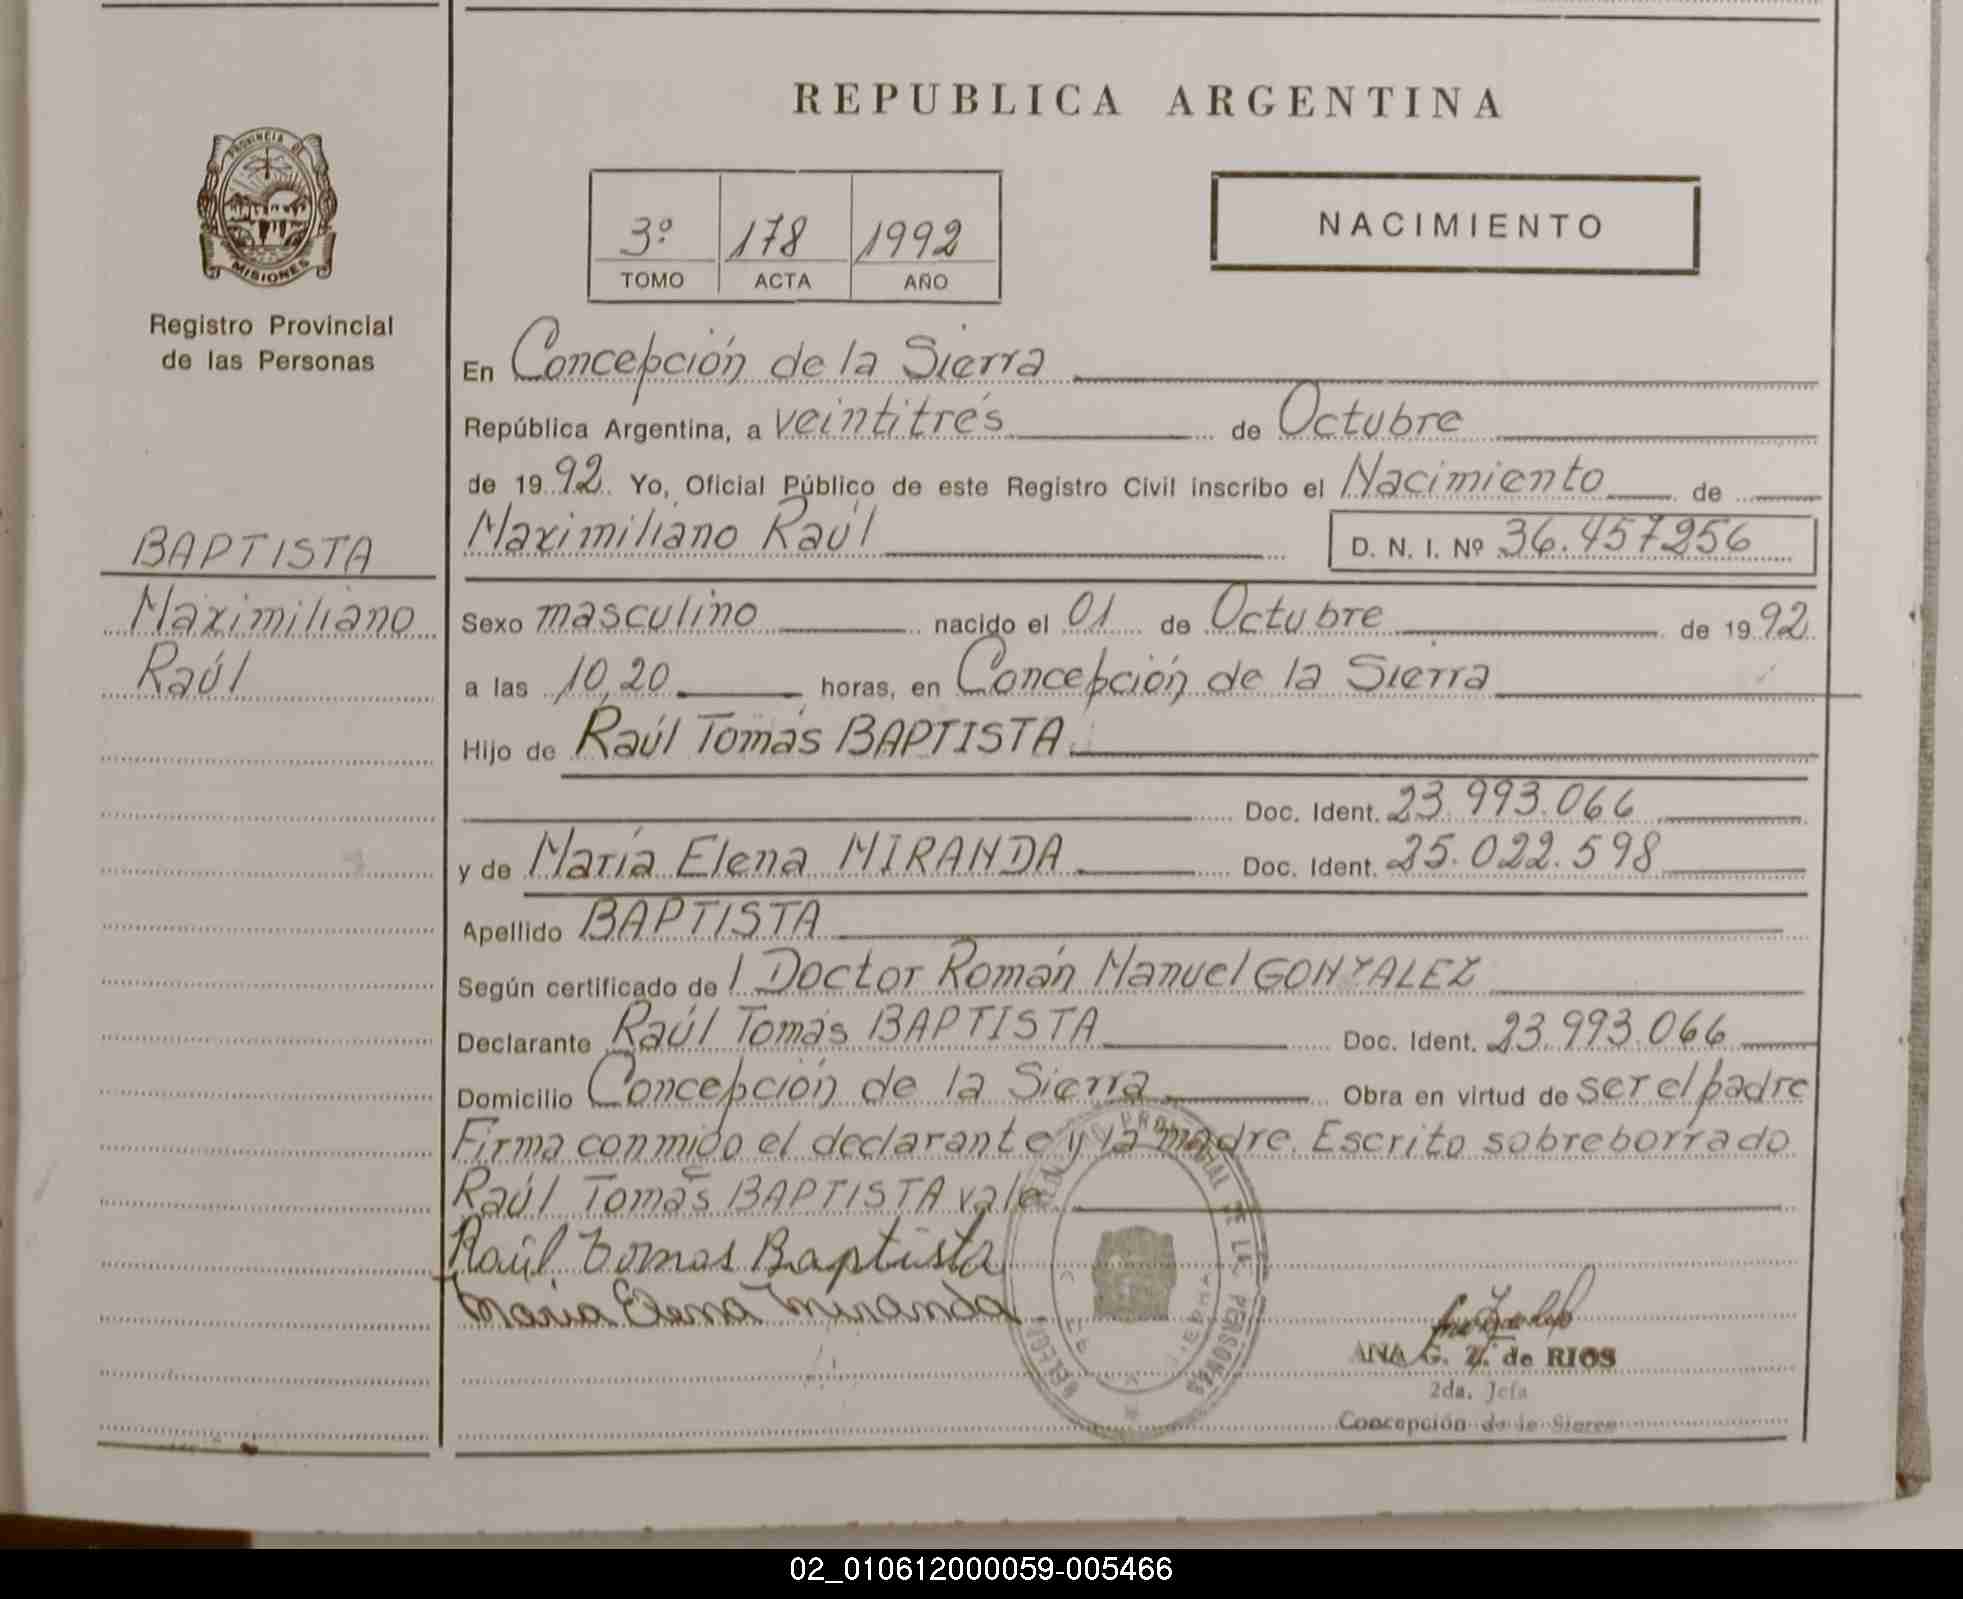 REPUBLICA ARGENTINA
PROVINCIA DE
MISIONES
Registro Provincial
de las Personas
3º 178 1992
TOMO ACTA AÑO
NACIMIENTO
BAPTISTA
Maximiliano
Raúl
En Concepción de la Sierra
República Argentina, a veintitrés de Octubre
de 1992. Yo, Oficial Público de este Registro Civil inscribo el Nacimiento de
Maximiliano Raúl D. N. I. Nº 36.457256
Sexo masculino nacido el 01 de Octubre de 1992
a las 10,20 horas, en Concepción de la Sierra
Hijo de Raúl Tomás BAPTISTA
Doc. Ident. 23.993.066
y de María Elena MIRANDA Doc. Ident. 25.022.598
Apellido BAPTISTA
Según certificado del Doctor Román Manuel GONZALEZ
Declarante Raúl Tomás BAPTISTA Doc. Ident. 23.993.066
Domicilio Concepción de la Sierra Obra en virtud de ser el padre
Firma conmigo el declarante y la madre. Escrito sobreborrado
Raúl Tomás BAPTISTA vale
Raúl Tomas Baptista
Maria Elena Miranda
PROVINCIAL DE LAS PERSONAS
ANA G. Z. de RIOS
2da. Jefa
Concepción de la Sierra
02_010612000059-005466